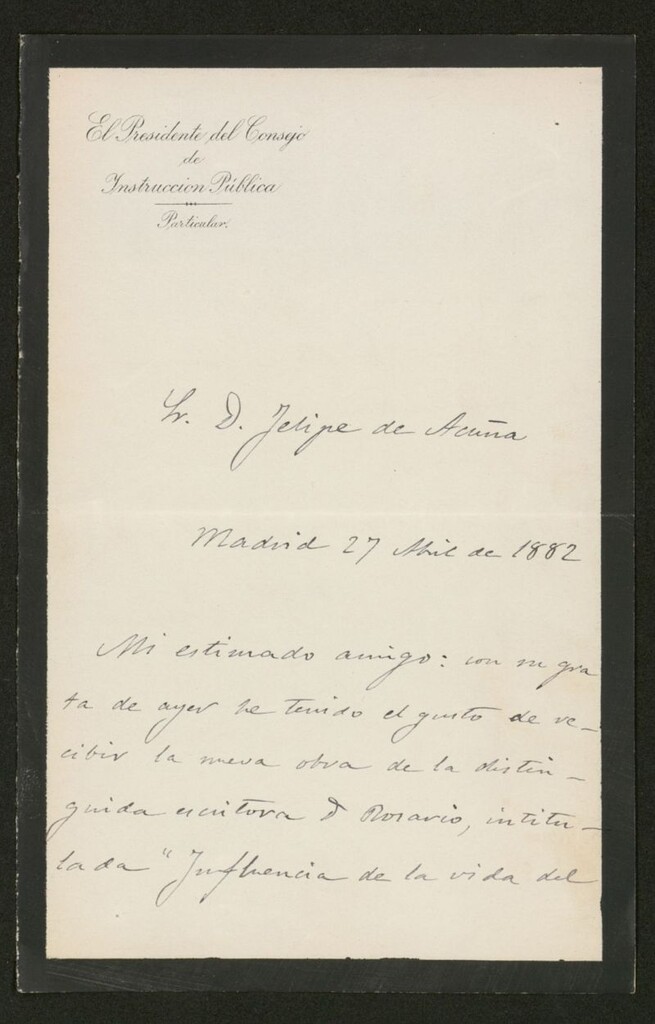 El Presidente del Consejo
de
Instruccion Pública
Particular.
Sr. D. Felipe de Acuña
Madrid 27 Abril de 1882
Mi estimado amigo: con su gra
ta de ayer he tenido el gusto de re-
cibir la nueva obra de la distin-
guida escritora D Rosario, intitu-
lada "Influencia de la vida del